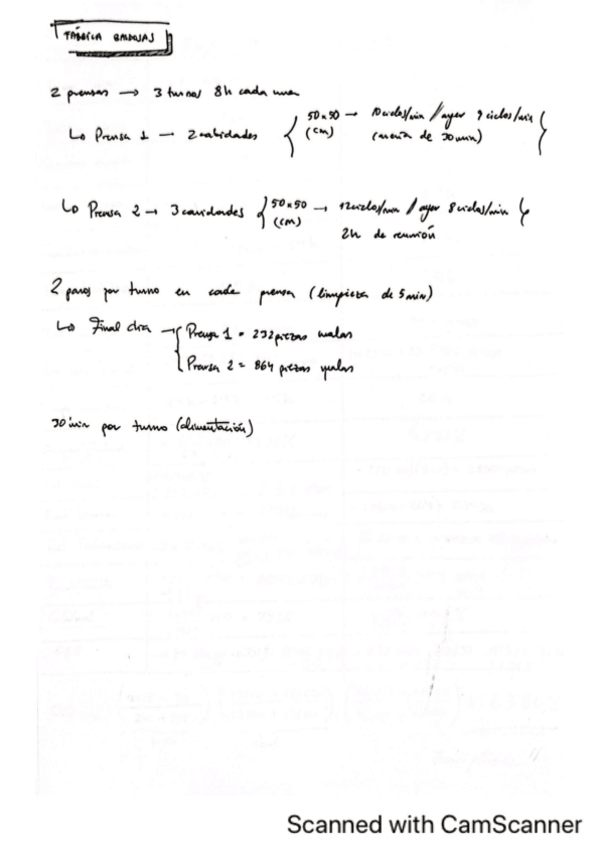 FÁBRICA BALDOSAS
2 prensas → 3 turnos 8h cada una
↳ Prensa 1 — 2 cavidades { 50x50 (cm) → 10 ciclos/min // ayer 9 ciclos/min
( de 30 min)
↳ Prensa 2 → 3 cavidades { 50x50 (cm) → 12 ciclos/min / ayer 8 ciclos/min
2h de reunión
2 paros por turno en cada prensa (limpieza de 5 min)
↳ Final día → { Prensa 1 = 232 piezas malas
Prensa 2 = 864 piezas malas
30 min por turno (alimentación)
Scanned with CamScanner